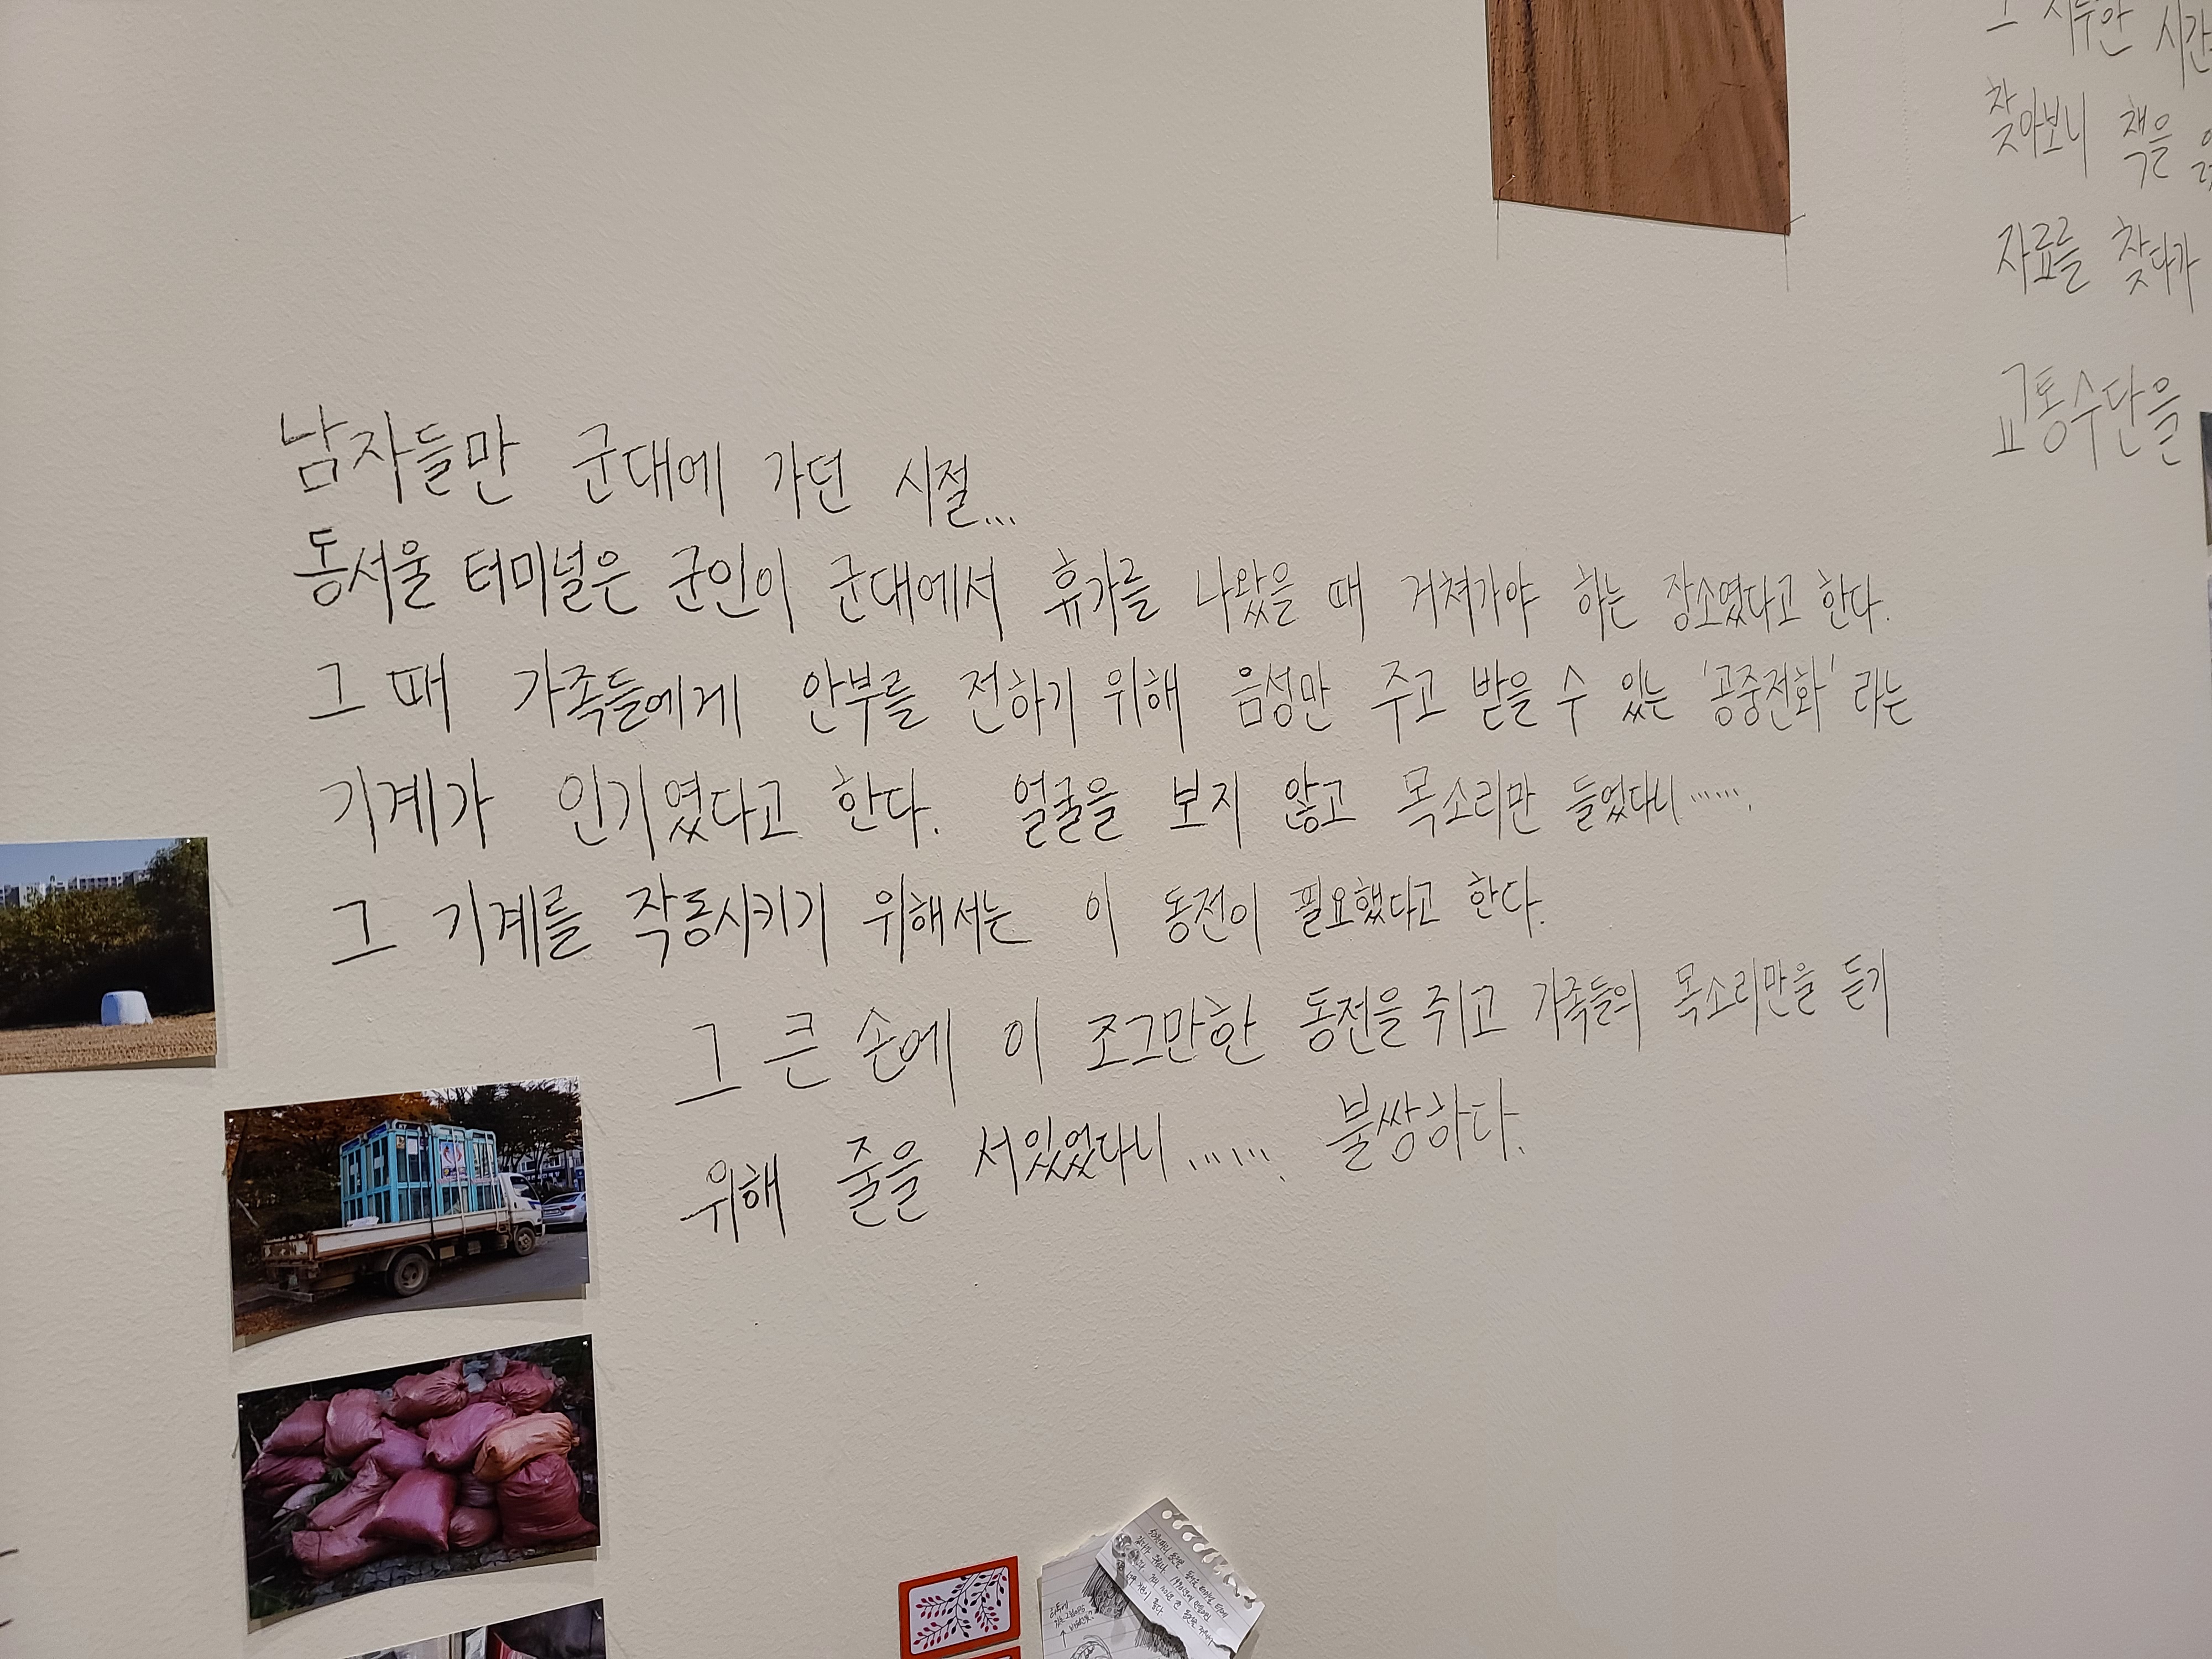 남자들만 군대에 가던 시절...
동서울 터미널은 군인이 군대에서 휴가를 나왔을 때 거쳐가야 하는 장소였다고 한다.
그 때 가족들에게 안부를 전하기 위해 음성만 주고 받을 수 있는 '공중전화' 라는
기계가 인기였다고 한다. 얼굴을 보지 않고 목소리만 들었다니.......
그 기계를 작동시키기 위해서는 이 동전이 필요했다고 한다.
그 큰 손에 이 조그만한 동전을 쥐고 가족들의 목소리만을 듣기
위해 줄을 서있었다니....... 불쌍하다.
그 지루한 시간
찾아보니 책을
자료를 찾다가
교통수단을